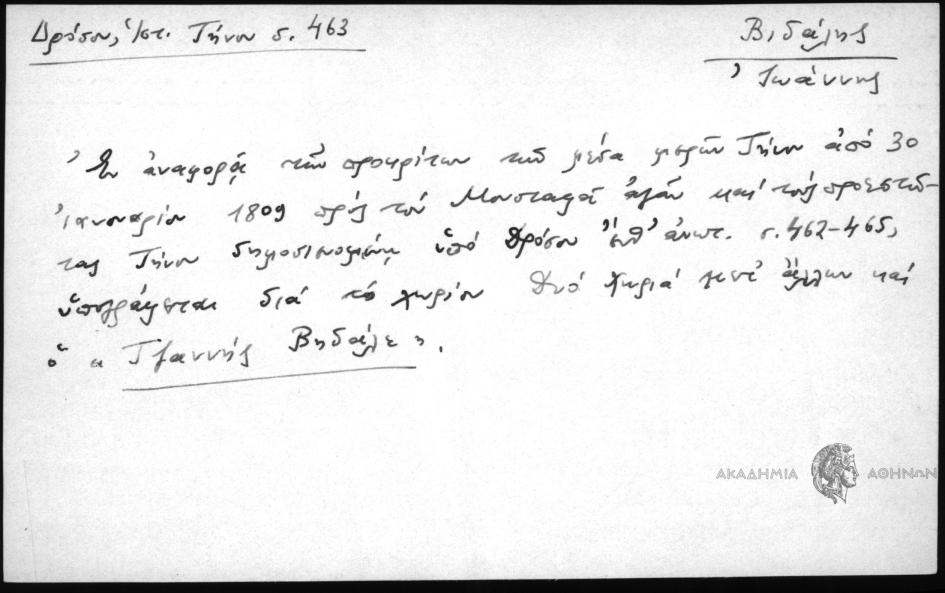 Δρόσου, Ἱστ. Τήνου σ. 463
Βιδάλης
Ἰωάννης
Ἐν ἀναφορᾷ τῶν προκρίτων τῶν μέσα μερῶν Τήνου ἀπό 30
Ἰανουαρίου 1809 πρός τόν Μουσταφᾶ ἀγᾶν καί τούς προεστῶ-
τας Τήνου δημοσιευομένῃ ὑπό Δρόσου ἔνθ' ἀνωτ. σ. 462-465,
ὑπογράφεται διά τό χωρίον Δυό Χωριά μετ' ἄλλων καί
ὁ « Τζαννής Βηδάλε».
ΑΚΑΔΗΜΙΑ ΑΘΗΝΩΝ